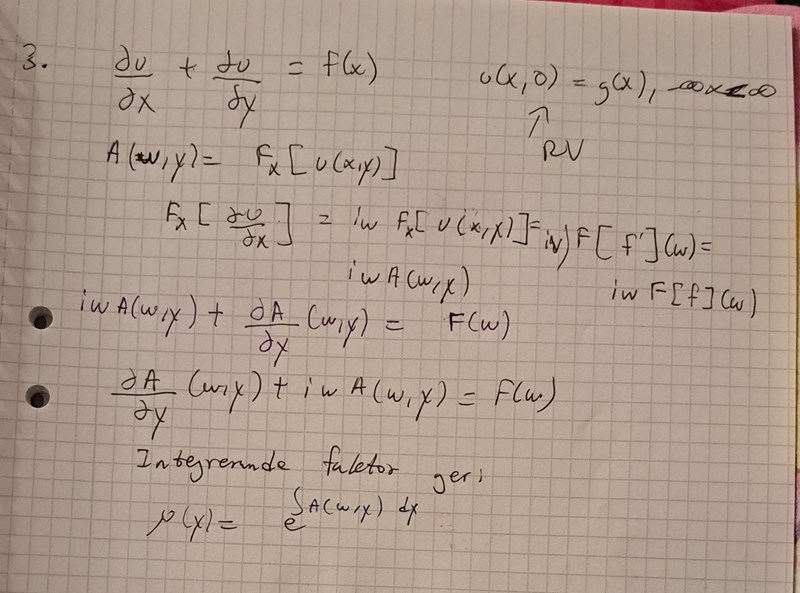 3. ∂u/∂x + ∂u/∂y = f(x)    u(x,0) = g(x), -∞<x<∞
↑
RV
A(w,y) = Fx[u(x,y)]
Fx[∂u/∂x] = iw Fx[u(x,y)] = iv) F[f'](w) =
iw A(w,y)    iw F[f](w)
iw A(w,y) + ∂A/∂y (w,y) = F(w)
∂A/∂y (w,y) + iw A(w,y) = F(w)
Integrerande faktor ger;
μ(y) = e^∫A(w,y) dy